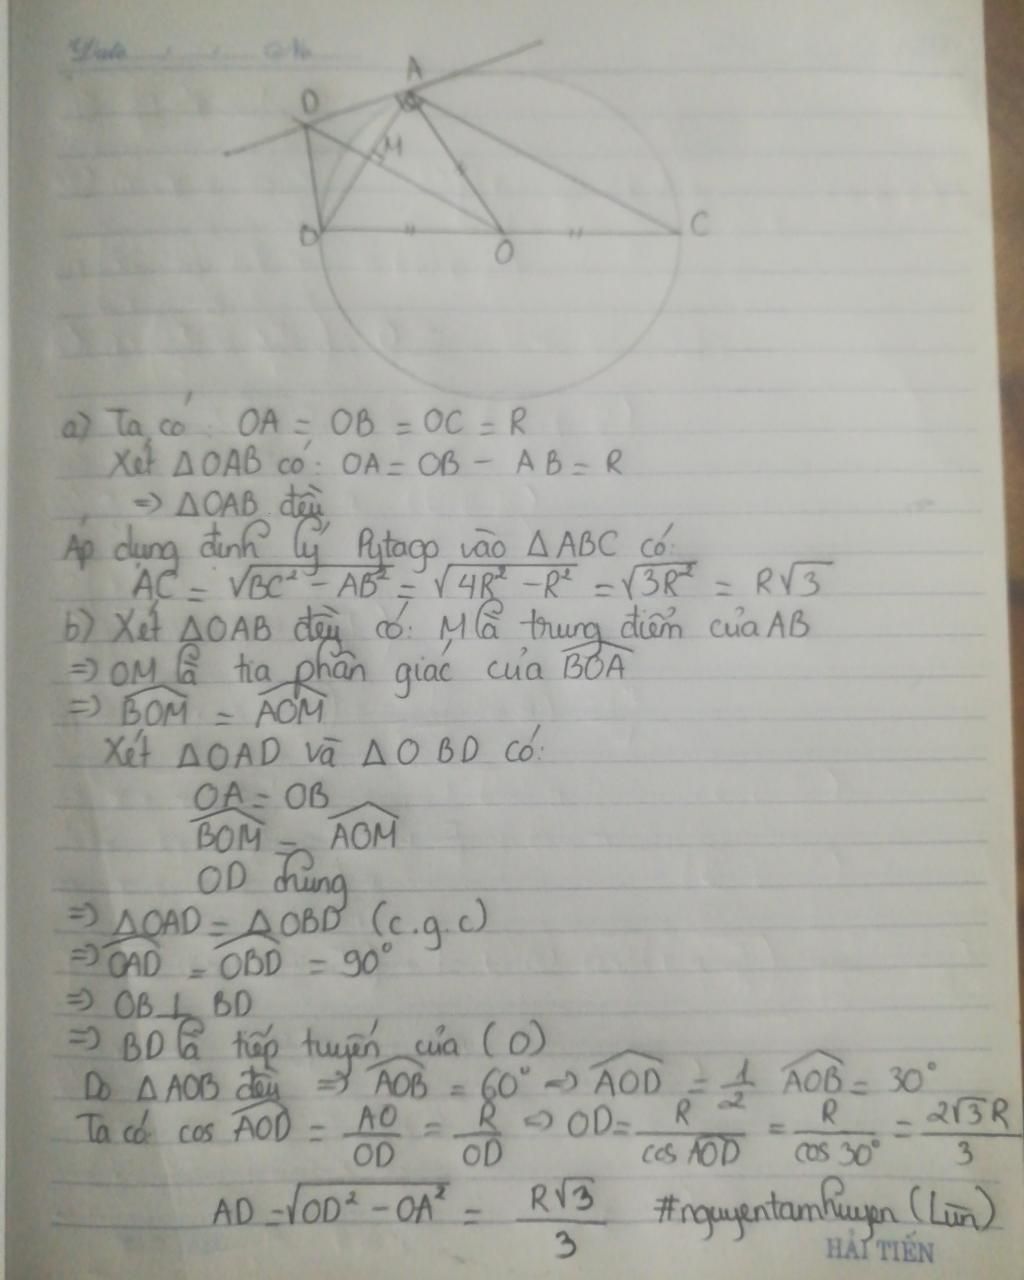 Date No
A
D
M
B
O
C
a) Ta có: OA = OB = OC = R
Xét ΔOAB có: OA = OB = AB = R
=> ΔOAB đều
Áp dụng định lý Pytago vào ΔABC có:
AC = √(BC² - AB²) = √(4R² - R²) = √(3R²) = R√3
b) Xét ΔOAB đều có: M là trung điểm của AB
=> OM là tia phân giác của BOA
=> BOM = AOM
Xét ΔOAD và ΔOBD có:
OA = OB
BOM = AOM
OD chung
=> ΔOAD = ΔOBD (c.g.c)
=> OAD = OBD = 90°
=> OB ⊥ BD
=> BD là tiếp tuyến của (O)
Do ΔAOB đều => AOB = 60° => AOD = 1/2 AOB = 30°
Ta có cos AOD = AO/OD = R/OD => OD = R/cos AOD = R/cos 30° = 2√3R/3
AD = √(OD² - OA²) = R√3/3 #nguyentamhuyen (Lùn)
HẢI TIẾN